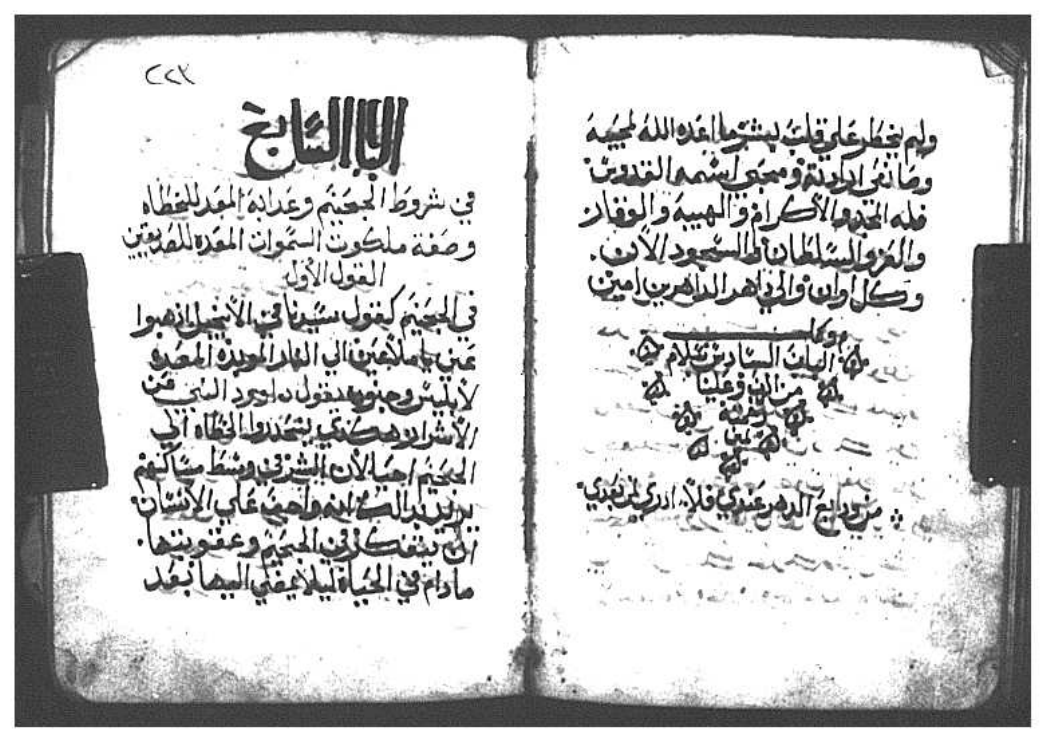 ولم يخطر على قلب بشر ما اعده الله لمحبيه
وصانعى ارادته ومحبى اسمه القدوس
فله المجد والاكرام والهيبه والوقار
والعز والسلطان والسجود الان
وكل اوان والي داهر الداهرين امين
الباب السادس بسلام
من الرب وعلينا
رحمته
امين
من ودايع الدهر عندي فلا ادري لمن بعدي
٢٢٣
الباب السابع
في شروط الجحيم وعدابه المعد للخطاه
وصفة ملكوت السموات المعده للصديقين
القول الاول
في الجحيم كقول سيدنا في الانجيل ادهبوا
عني يا ملاعين الي النار الموبده المعده
لابليس وجنوده ويقول داوود النبي عن
الاشرار هكدي ينحدروا الخطاه الي
الجحيم احيا لان الشر في وسط مساكنهم
يريد بدالك انه واجب علي الانسان
ان يتفكر في الجحيم وعقوبتها
ما دام في الحياة ليلا يمضي اليها بعد